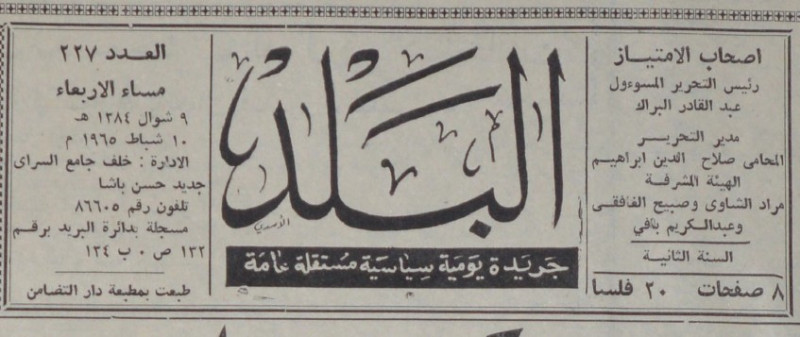 اصحاب الامتياز
رئيس التحرير المسوءول
عبد القادر البراك
مدير التحريـــر
المحامى صلاح الدين ابراهيم
الهيئة المشرفة
مراد الشاوى وصبيح الغافقى
وعبدالكريم بافي
السنة الثانية
٨ صفحات ٢٠ فلسا
البلد
الأسدي
جريدة يومية سياسية مستقلة عامة
العـدد ٢٢٧
مساء الاربعاء
٩ شوال ١٣٨٤ هـ
١٠ شباط ١٩٦٥ م
الادارة : خلف جامع السراى
جديد حسن باشا
تلفون رقم ٨٦٦٠٥
مسجلة بدائرة البريد برقم
١٣٢ ص ٠ ب ١٣٤
طبعت بمطبعة دار التضامن